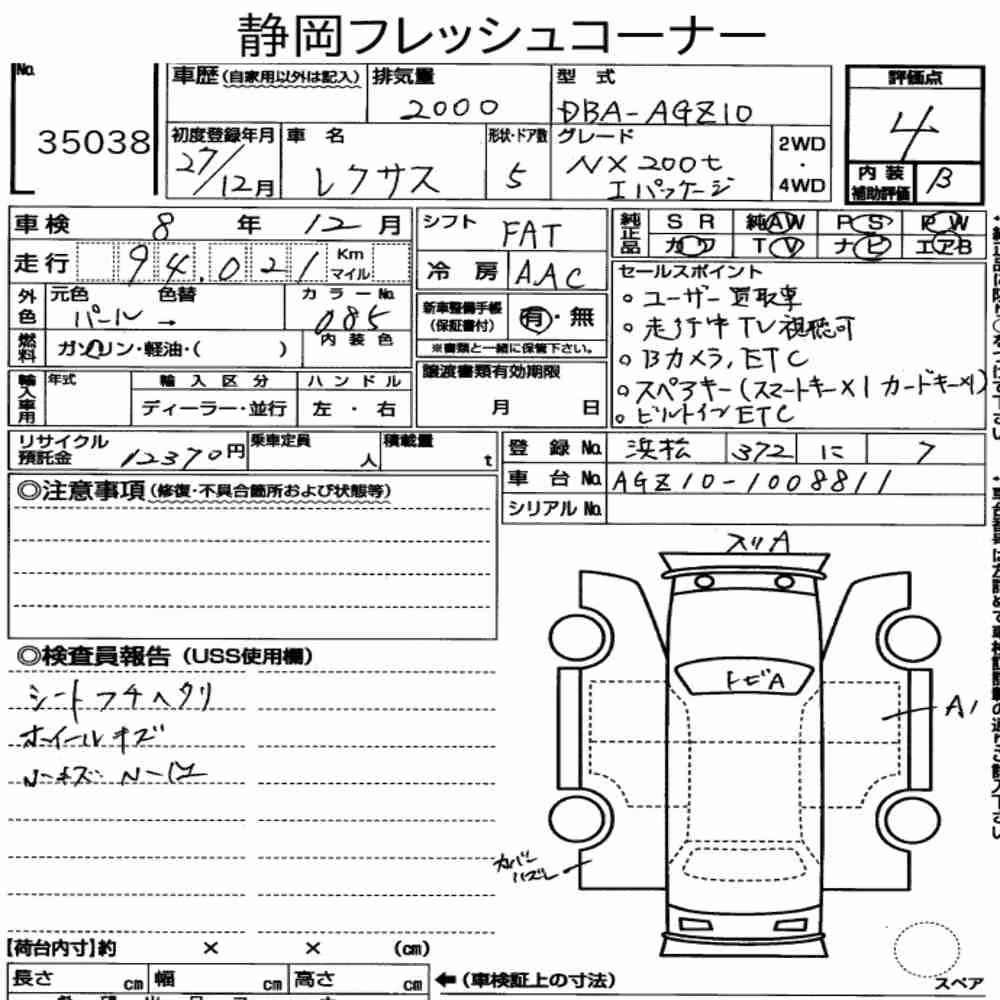 静岡フレッシュコーナー
No.
35038
車歴 (自家用以外は記入)
排気量
2000
型式
DBA-AGZ10
評価点
4
初度登録年月
27/12月
車名
レクサス
形状・ドア数
5
グレード
NX200t
Iパッケージ
2WD
・
4WD
内装
補助評価
B
車検 8年 12月
走行 94,021 Km マイル
外色
元色 色替
パール →
カラーNo.
085
燃料
ガソリン・軽油・( )
内装色
輸入車用
年式
輸入区分
ディーラー・並行
ハンドル
左・右
シフト FAT
冷房 AAC
新車整備手帳
(保証書付)
有・無
※書類と一緒に保管下さい。
譲渡書類有効期限
月 日
純正品
SR 純AW PS PW
カワ TV ナビ エアB
セールスポイント
○ユーザー買取車
○走行中TV視聴可
○Bカメラ, ETC
○スペアキー(スマートキー×1 カードキー×1)
○ビルトインETC
リサイクル
預託金
12370円
乗車定員
人
積載量
t
登録No. 浜松 372 に 7
車台No. AGZ10-1008811
シリアルNo.
◎注意事項 (修復・不具合箇所および状態等)
◎検査員報告 (USS使用欄)
シートフチヘタリ
ホイールキズ
スリA
トビA
A1
カバー
ハズレ
【荷台内寸】約 × × (cm)
長さ cm 幅 cm 高さ cm
←(車検証上の寸法)
スペア